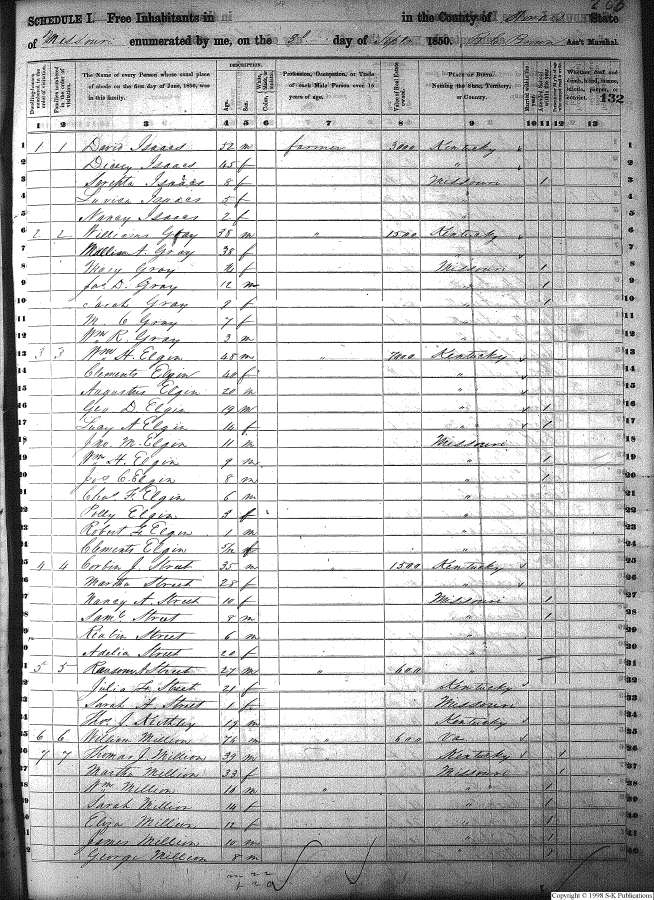 SCHEDULE I. Free Inhabitants in in the County of State
of Missouri enumerated by me, on the day of Sept 1850. Ass't Marshal.
132
DESCRIPTION.
Dwelling-houses numbered in the order of visitation.
Families numbered in the order of visitation.
The Name of every Person whose usual place of abode on the first day of June, 1850, was in this family.
Age.
Sex.
Profession, Occupation, or Trade of each Male Person over 15 years of age.
Value of Real Estate owned.
PLACE OF BIRTH. Naming the State, Territory, or Country.
1 2 3 4 5 6 7 8 9 10 11 12 13
1 1 1 David Isaacs 52 m farmer 3000 Kentucky
2 Isaacs 45 f "
3 Isaacs 8 f Missouri 1
4 Luvisa Isaacs 5 f "
5 Nancy Isaacs 2 f "
6 2 2 Williams Gray 38 m " 1500 Kentucky
7 A. Gray 38 f "
8 Mary Gray f Missouri 1
9 Jas D. Gray 12 m " 1
10 Sarah Gray 9 f " 1
11 M C Gray 7 f "
12 Wm R. Gray 3 m "
13 3 3 Wm H. Elgin 48 m " 7000 Kentucky
14 Clements Elgin 40 f "
15 Augustus Elgin 20 m "
16 Geo D. Elgin 19 m " 1
17 A Elgin 14 f " 1
18 Jno M. Elgin 11 m Missouri
19 Wm H. Elgin 9 m " 1
20 Jos C. Elgin 8 m " 1
21 Chas F. Elgin 6 m "
22 Polly Elgin 3 f "
23 Robert Elgin 1 m "
24 Clements Elgin f "
25 4 4 Corbin J. Street 35 m " 1500 Kentucky
26 Martha Street 28 f "
27 Nancy A. Street 10 f Missouri 1
28 Saml Street 8 m " 1
29 Reubin Street 6 m "
30 Adelia Street 20 f "
31 5 5 Ransom Street 27 m " 600 "
32 Julia Street 21 f Kentucky
33 Sarah A. Street 1 f Missouri
34 Thos J. Keithley 19 m Kentucky
35 6 6 William Million 76 m " 600 Va
36 7 7 Thomas J. Million 39 m " Kentucky 1
37 Martha Million 33 f Missouri 1
38 Wm Million 16 m " " 1
39 Sarah Million 14 f " 1
40 Eliza Million 12 f " 1
41 James Million 10 m " 1
42 George Million 8 m " 1
Copyright © 1998 S-K Publications